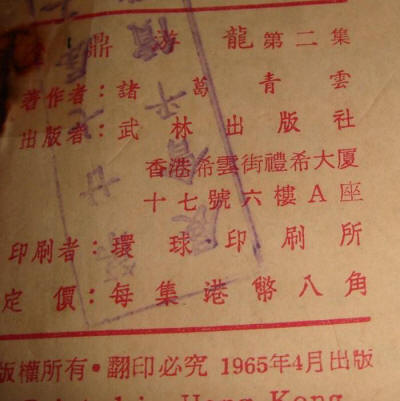 鼎游龍第二集
著作者：諸葛青雲
出版者：武林出版社
香港希雲街禮希大厦
十七號六樓A座
印刷者：環球印刷所
定價：每集港幣八角
版權所有•翻印必究 1965年4月出版
Printed in Hong Kong